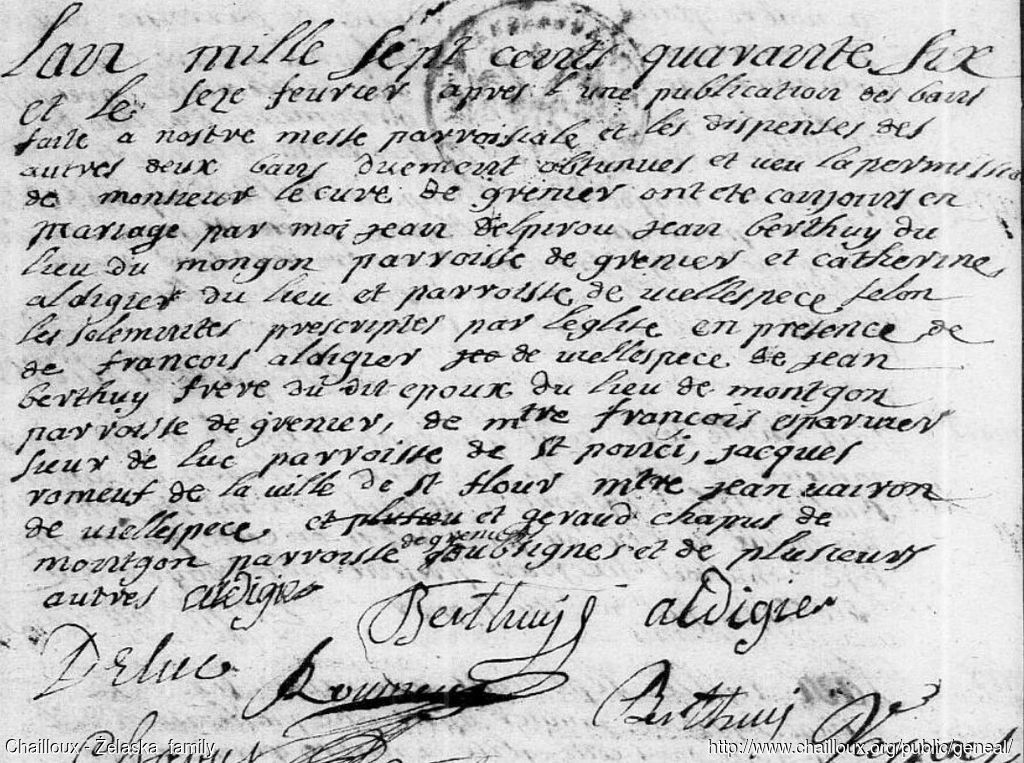 Lan mille sept cents quarante six
et le seze feurier apres l une publication des bans
faite a nostre messe parroissiale et les dispenses des
autres deux bans duement obtunues et ueu la permission
de monsieur le cure de grenier ont ete conjoins en
mariage par moi jean delpirou jean berthuy du
lieu du mongon parroisse de grenier et catherine
aldigier du lieu et parroisse de uiellespece selon
les solemnites prescriptes par leglise en presence de
de francois aldigier de uiellespece de jean
berthuy frere du dit epoux du lieu de montgon
parroisse de grenier, de mtre francois esparuier
sieur de luc parroisse de st ponci, jacques
romeuf de la uille de st flour mtre jean uairon
de uiellespece et plusieu et geraud chapus de
montgon parroisse de grenier soubsignes et de plusieurs
autres aldigier
Berthuy aldigier
Deluc
Berthuy
Chailloux - Želaska family http://www.chailloux.org/public/geneal/